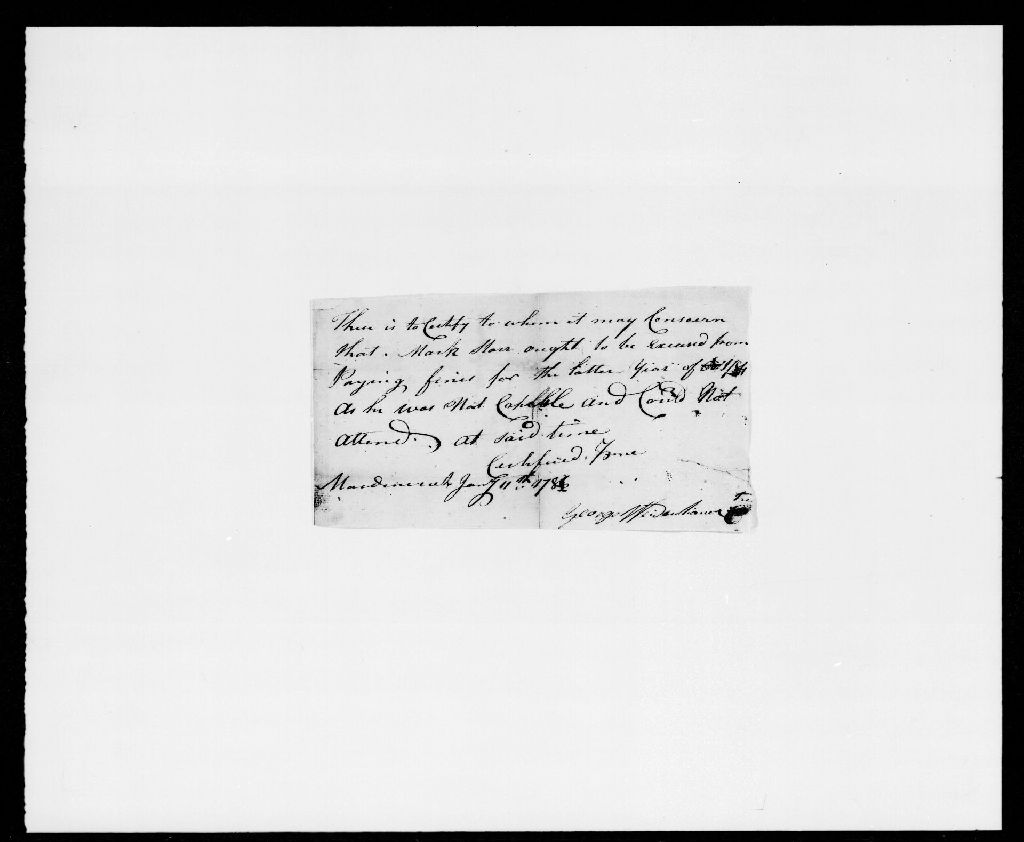 These is to Certify to whom it may Conscern
that. Mark Starr ought to be Excused from
Paying fines for the latter Year of
As he was Not Capable and Could Not
attend. at said time
Certified. Pr me
Jany 11th 1786
George